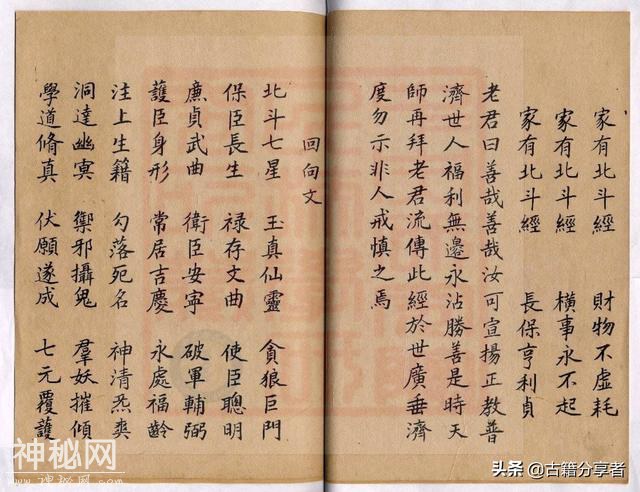 家有北斗經 財物不虛耗
家有北斗經 橫事永不起
家有北斗經 長保亨利貞
老君曰善哉善哉汝可宣揚正教普
濟世人福利無邊永沾勝善是時天
師再拜老君流傳此經於世廣垂濟
度勿示非人戒慎之焉
回向文
北斗七星 玉真仙靈 貪狼巨門
保臣長生 禄存文曲 使臣聰明
廉貞武曲 衛臣安寧 破軍輔弼
護臣身形 常居吉慶 永處福齡
注上生籍 勾落死名 神清炁爽
洞達幽冥 禦邪攝鬼 羣妖摧傾
學道脩真 伏願遂成 七元覆護
神秘网
WWW.神秘网.COM
头条 @古籍分享者